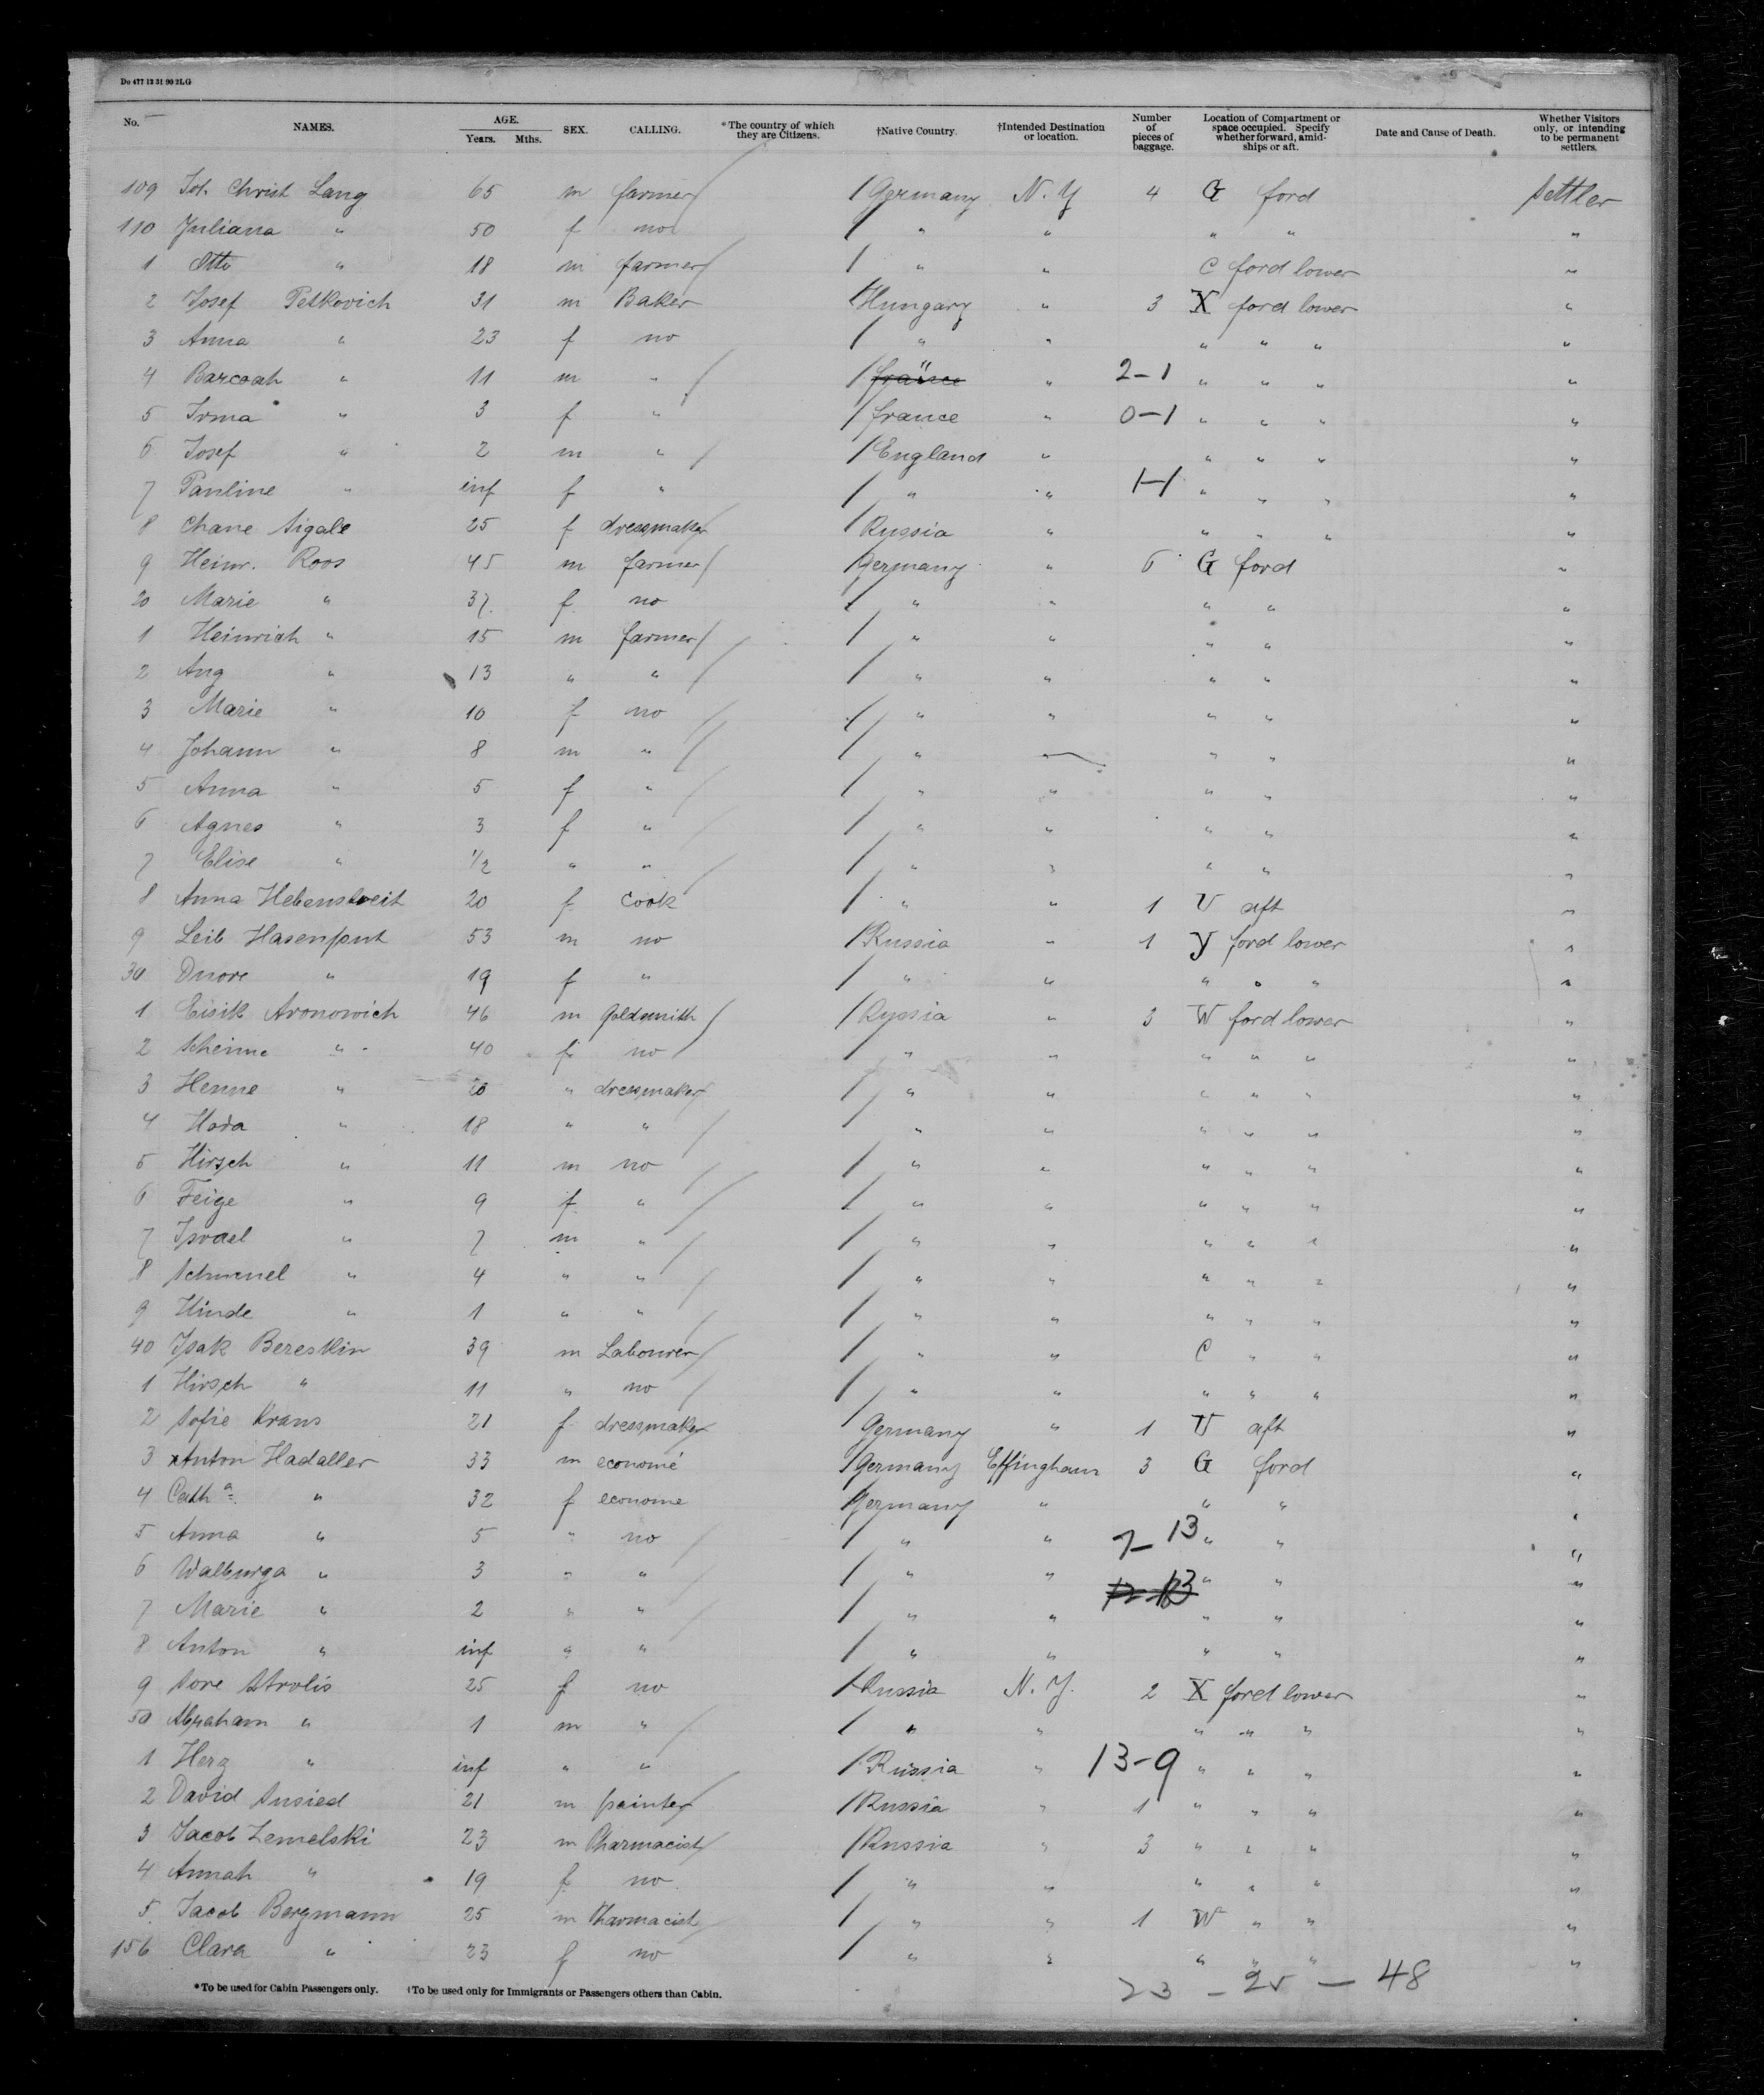 Do 477 12 31 90 2LG
No. NAMES. AGE. Years. Mths. SEX. CALLING. *The country of which they are Citizens. †Native Country. †Intended Destination or location. Number of pieces of baggage. Location of Compartment or space occupied. Specify whether forward, amid-ships or aft. Date and Cause of Death. Whether Visitors only, or intending to be permanent settlers.
109 Joh. Christ Lang 65 m farmer / Germany N.Y 4 G ford Settler
110 Juliana " 50 f no / " " " " "
1 Otto " 18 m farmer / " " C ford lower "
2 Josef Petkovich 31 m Baker / Hungary " 3 X ford lower "
3 Anna " 23 f no / " " " " " "
4 Barcoah " 11 m " / france " " 2-1 " " " "
5 Irma " 3 f " / france " 0-1 " " " "
6 Josef " 2 m " / England " " " " "
7 Pauline " inf f " / " " 1-1 " " " "
8 Chane Sigale 25 f dressmaker / Russia " " " " "
9 Heinr. Roos 45 m farmer / Germany " 6 G ford "
20 Marie " 37 f no / " " " " "
1 Heinrich " 15 m farmer / " " " " "
2 Aug " 13 " " / " " " " "
3 Marie " 10 f no / " " " " "
4 Johann " 8 m " / " " " "
5 Anna " 5 f " / " " " " "
6 Agnes " 3 f " / " " " " "
7 Elise " 1/2 " " / " " " " "
8 Anna Hebenstreit 20 f cook / " " 1 U aft "
9 Leib Hasenfout 53 m no / Russia " 1 Y ford lower "
30 Dwore " 19 f " / " " " " " "
1 Eisik Aronowich 46 m goldsmith / Russia " 3 W ford lower "
2 Scheime " 40 f no / " " " " " "
3 Henne " 20 " dressmaker / " " " " " "
4 Hoda " 18 " " / " " " " " "
5 Hirsch " 11 m no / " " " " " "
6 Feige " 9 f " / " " " " " "
7 Israel " 7 m " / " " " " " "
8 Schmuel " 4 " " / " " " " " "
9 Hinde " 1 " " / " " " " " "
40 Isak Bereskin 39 m Labourer / " " C " " "
1 Hirsch " 11 " no / " " " " " "
2 Sofie Kraus 21 f dressmaker / Germany " 1 U aft "
3 Anton Hadaller 33 m econome / Germany Effingham 3 G ford "
4 Cath a " 32 f econome / Germany " " " "
5 Anna " 5 " no / " " 7-13 " " "
6 Walburga " 3 " " / " " " " "
7 Marie " 2 " " / " " " " "
8 Anton " inf " " / " " " " "
9 Sore Strolis 25 f no / Russia N.Y. 2 X ford lower "
50 Abraham " 1 m " / " " " " " "
1 Herz " inf " " / Russia " 13-9 " " " "
2 David Susied 21 m painter / Russia " 1 " " " "
3 Jacob Zemelski 23 m Pharmacist / Russia " 3 " " " "
4 Annah " 19 f no / " " " " " "
5 Jacob Bergmann 25 m Pharmacist / " " 1 W " " "
156 Clara " 23 f no / " " " " " "
23 - 25 - 48
*To be used for Cabin Passengers only. †To be used only for Immigrants or Passengers others than Cabin.